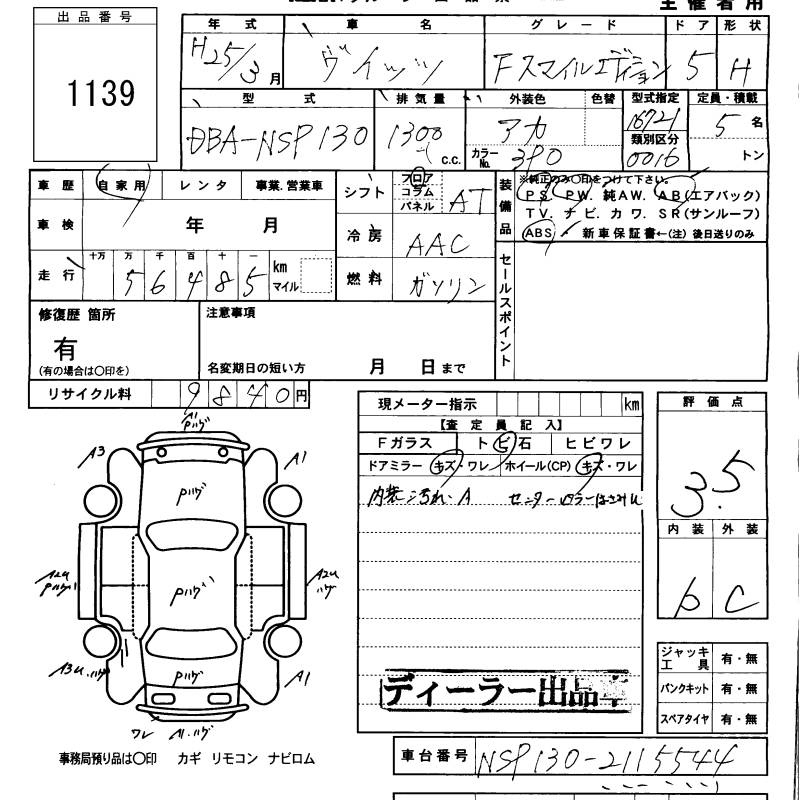 主催者用
出品番号
1139
年式 車名 グレード ドア 形状
H25/3月 ヴィッツ Fスマイルエディション 5 H
型式 排気量 外装色 色替 型式指定 定員・積載
DBA-NSP130 1300 c.c. アカ 16721 5名
カラーNo. 3P0 類別区分 0016 トン
車歴 自家用 レンタ 事業.営業車
シフト フロア コラム パネル AT
装備品 ※純正のみ〇印をつけて下さい。
PS. PW. 純AW. AB(エアバック)
TV. ナビ. カワ. SR(サンルーフ)
ABS 新車保証書←(注)後日送りのみ
車検 年 月
冷房 AAC
走行 十万 万 千 百 十 一
56485 km マイル
燃料 ガソリン
セールスポイント
修復歴 箇所
有
(有の場合は〇印を)
注意事項
名変期日の短い方 月 日まで
リサイクル料 9840円
現メーター指示 km
【査定員記入】
Fガラス トビ石 ヒビワレ
ドアミラー キズ・ワレ ホイール(CP) キズ・ワレ
内装:汚れ・A センター
評価点
3.5
内装 外装
b C
A1
Pハゲ
A3 A1
Pハゲ
A2U Pハゲ
Pハゲ
A2U ハゲ
Pハゲ
A3U.ハゲ A1
ワレ A1.ハゲ
ジャッキ工具 有・無
パンクキット 有・無
スペアタイヤ 有・無
ディーラー出品車
事務局預り品は〇印 カギ リモコン ナビロム
車台番号 NSP130-2115544